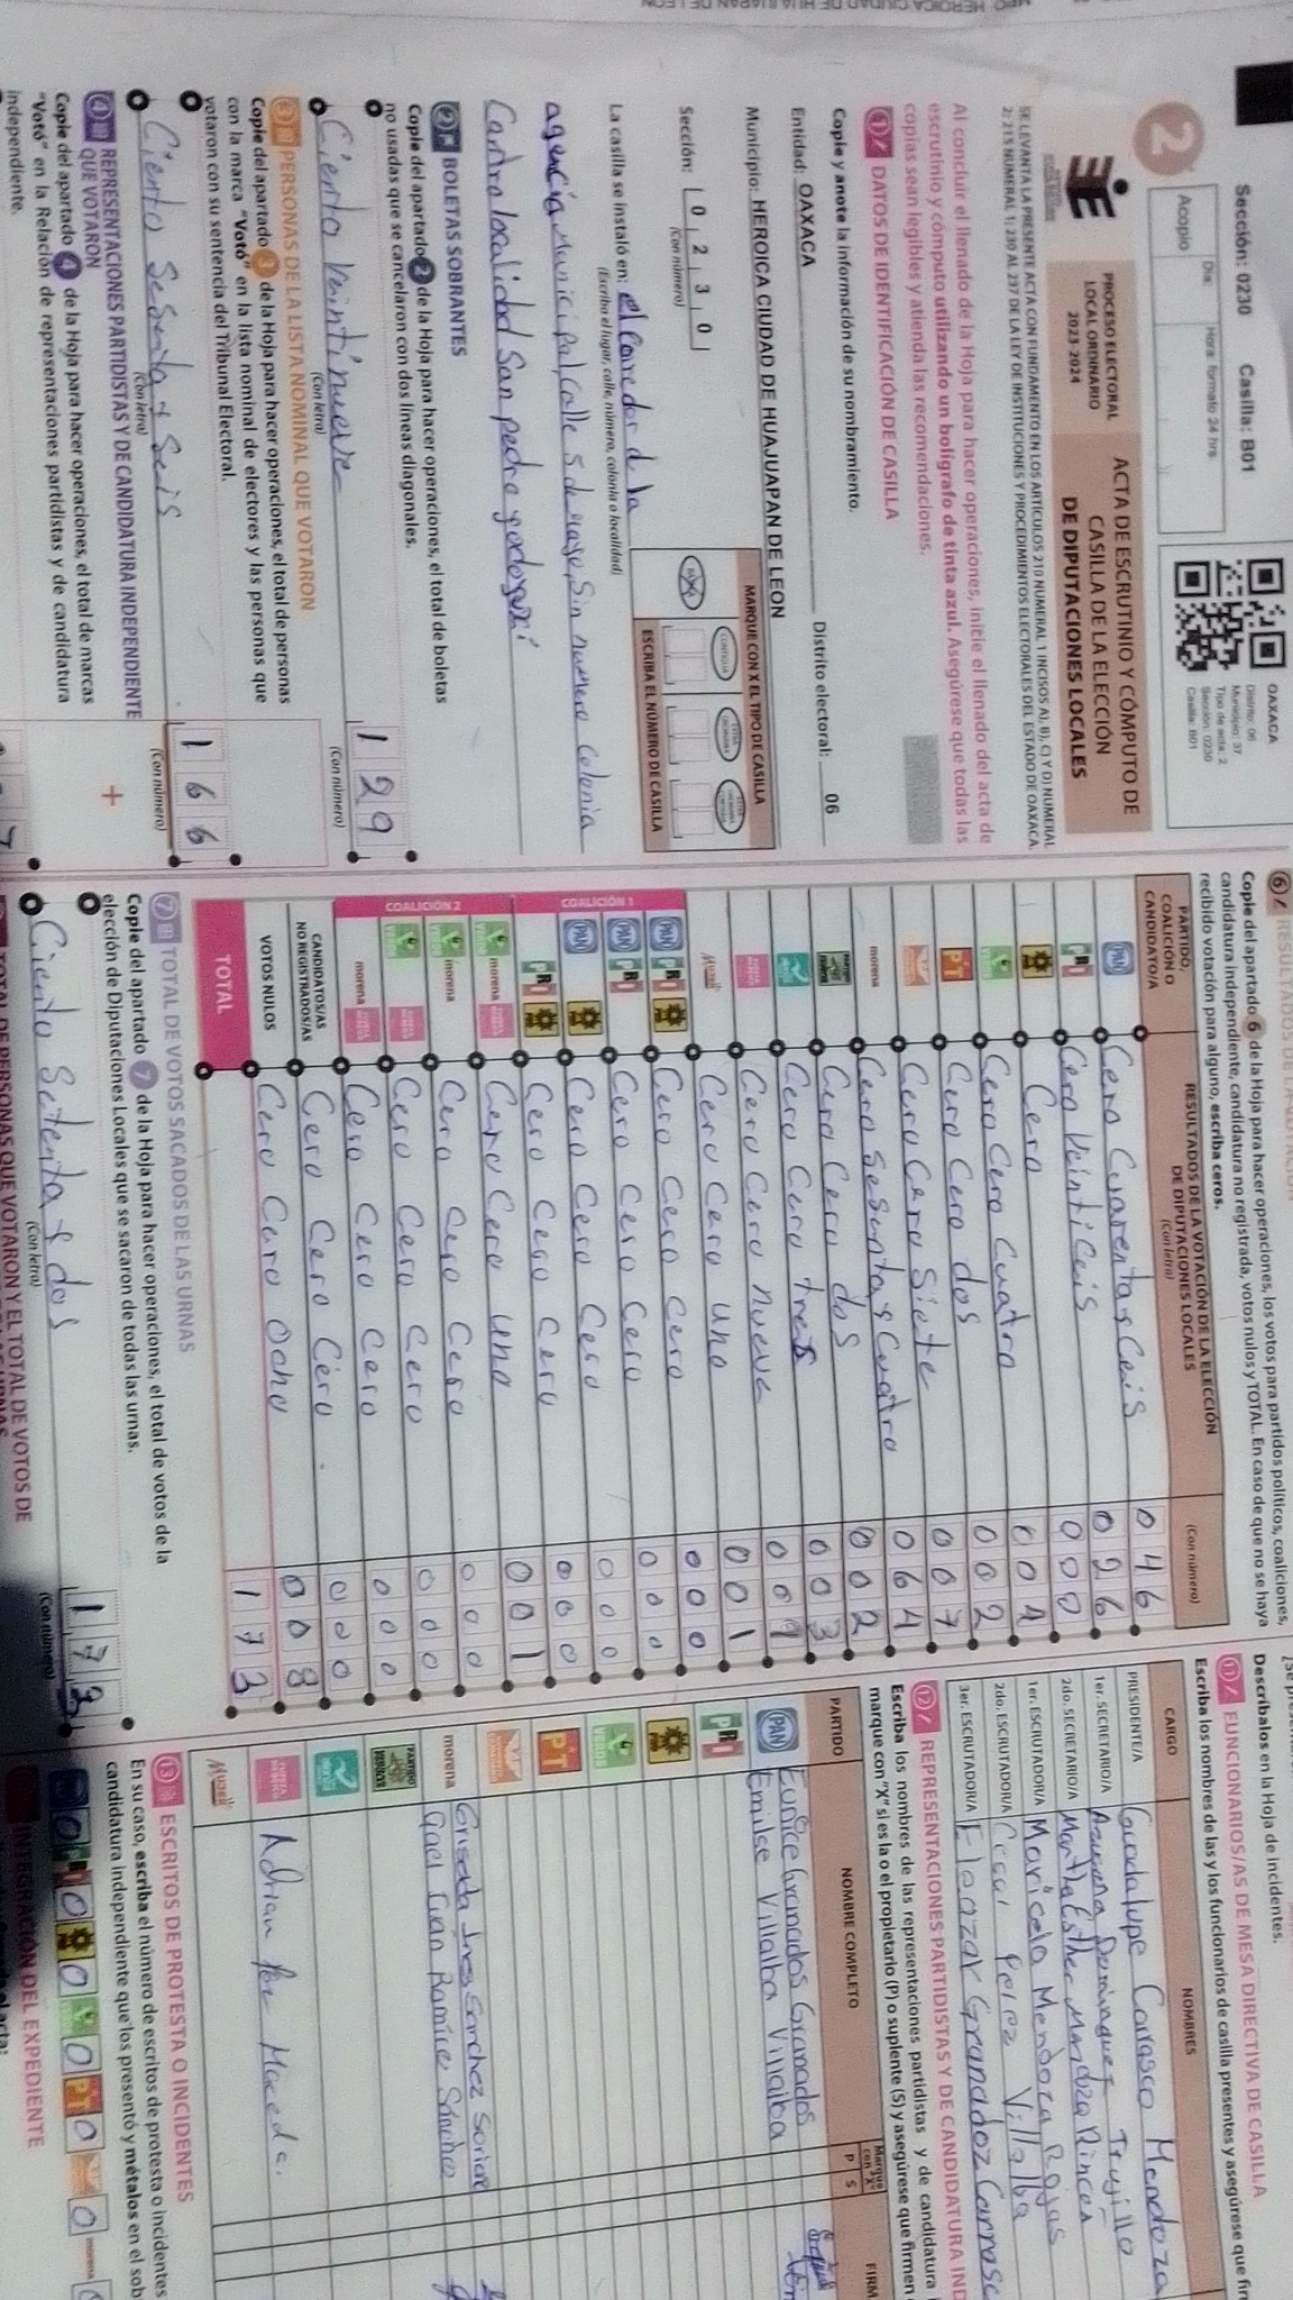 Sección: 0230 Casilla: B01
2
Día: Hora: formato 24 hrs
Acopio
OAXACA
Distrito: 06
Municipio: 37
Tipo de acta: 2
Sección: 0230
Casilla: B01
PROCESO ELECTORAL
LOCAL ORDINARIO
2023-2024
ACTA DE ESCRUTINIO Y CÓMPUTO DE
CASILLA DE LA ELECCIÓN
DE DIPUTACIONES LOCALES
SE LEVANTA LA PRESENTE ACTA CON FUNDAMENTO EN LOS ARTÍCULOS 210 NUMERAL 1 INCISOS A), B), C) Y D) NUMERAL
2; 215 NUMERAL 1; 230 AL 237 DE LA LEY DE INSTITUCIONES Y PROCEDIMIENTOS ELECTORALES DEL ESTADO DE OAXACA.
Al concluir el llenado de la Hoja para hacer operaciones, inicie el llenado del acta de
escrutinio y cómputo utilizando un bolígrafo de tinta azul. Asegúrese que todas las
copias sean legibles y atienda las recomendaciones.
1 DATOS DE IDENTIFICACIÓN DE CASILLA
Copie y anote la información de su nombramiento.
Entidad: OAXACA Distrito electoral: 06
Municipio: HEROICA CIUDAD DE HUAJUAPAN DE LEON
Sección: 0 2 3 0
(Con número)
MARQUE CON X EL TIPO DE CASILLA
ESCRIBA EL NÚMERO DE CASILLA
La casilla se instaló en: el Coredor d la
(Escriba el lugar, calle, número, colonia o localidad)
agencia Municipal, Calle 5 de mayo, Sin numero Colonia
Centro localidad San pedro yodoyuxi
2 BOLETAS SOBRANTES
Copie del apartado 2 de la Hoja para hacer operaciones, el total de boletas
no usadas que se cancelaron con dos líneas diagonales.
Ciento Veinti nueve 1 2 9
(Con letra) (Con número)
3 PERSONAS DE LA LISTA NOMINAL QUE VOTARON
Copie del apartado 3 de la Hoja para hacer operaciones, el total de personas
con la marca "Votó" en la lista nominal de electores y las personas que
votaron con su sentencia del Tribunal Electoral.
Ciento Sesenta y Seis 1 6 6
(Con letra) (Con número)
4 REPRESENTACIONES PARTIDISTAS Y DE CANDIDATURA INDEPENDIENTE
QUE VOTARON
Copie del apartado 4 de la Hoja para hacer operaciones, el total de marcas
"Votó" en la Relación de representaciones partidistas y de candidatura
independiente.
+
7
6 RESULTADOS DE LA VOTACIÓN
Copie del apartado 6 de la Hoja para hacer operaciones, los votos para partidos políticos, coaliciones,
candidatura independiente, candidatura no registrada, votos nulos y TOTAL. En caso de que no se haya
recibido votación para alguno, escriba ceros.
PARTIDO,
COALICIÓN O
CANDIDATO/A
RESULTADOS DE LA VOTACIÓN DE LA ELECCIÓN
DE DIPUTACIONES LOCALES
(Con letra)
(Con número)
PAN Cero Cuarenta y Ceis 0 4 6
PRI Cero Veinti Ceis 0 2 6
Cero 0 0 0
VERDE Cero Cero Cuatro 0 0 4
PT Cero Cero dos 0 0 2
Cero Cero Siete 0 0 7
morena Cero Sesenta y Cuatro 0 6 4
Cero Cero dos 0 0 2
Cero Cero tres 0 0 3
Cero Cero nueve 0 0 9
Mujer Cero Cero uno 0 0 1
COALICIÓN 1
PAN PRI Cero Cero Cero 0 0 0
PAN PRI Cero Cero Cero 0 0 0
PAN Cero Cero Cero 0 0 0
PRI Cero Cero Cero 0 0 0
COALICIÓN 2
morena Cero Cero uno 0 0 1
morena Cero Cero Cero 0 0 0
Cero Cero Cero 0 0 0
morena Cero Cero Cero 0 0 0
CANDIDATOS/AS
NO REGISTRADOS/AS Cero Cero Cero 0 0 0
VOTOS NULOS Cero Cero Ocho 0 0 8
TOTAL 1 7 3
7 TOTAL DE VOTOS SACADOS DE LAS URNAS
Copie del apartado 7 de la Hoja para hacer operaciones, el total de votos de la
elección de Diputaciones Locales que se sacaron de todas las urnas.
Ciento Setenta y dos 1 7 3
(Con letra) (Con número)
TOTAL DE PERSONAS QUE VOTARON Y EL TOTAL DE VOTOS DE
Descríbalos en la Hoja de incidentes.
11 FUNCIONARIOS/AS DE MESA DIRECTIVA DE CASILLA
Escriba los nombres de las y los funcionarios de casilla presentes y asegúrese que fir
CARGO NOMBRES
PRESIDENTE/A Guadalupe Carrasco Mendoza
1er. SECRETARIO/A Azucena Dominguez Trujillo
2do. SECRETARIO/A Martha Esther Mendoza Rincon
1er. ESCRUTADOR/A Maricela Mendoza Rojas
2do. ESCRUTADOR/A Cesar Perez Villalba
3er. ESCRUTADOR/A Eleazar Granadoz Carrasc
12 REPRESENTACIONES PARTIDISTAS Y DE CANDIDATURA IND
Escriba los nombres de las representaciones partidistas y de candidatura
marque con "X" si es la o el propietario (P) o suplente (S) y asegúrese que firmen
PARTIDO NOMBRE COMPLETO Marque con "X" P S FIRM
PAN Eunice Granados Granados
Emilse Villalba Villalba
PRI
VERDE
PT
morena Griselda Ines Sanchez Soriano
Gael Ramirez Sánchez
Adrian Macedo.
Mujer
13 ESCRITOS DE PROTESTA O INCIDENTES
En su caso, escriba el número de escritos de protesta o incidentes
candidatura independiente que los presentó y métalos en el sob
0 PRI 0 0 0 PT 0 0 morena
INTEGRACIÓN DEL EXPEDIENTE